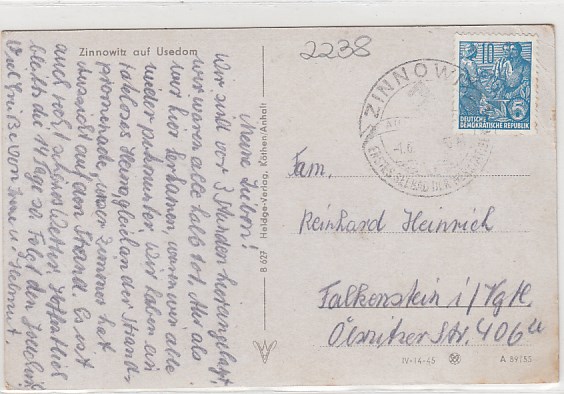 Zinnowitz auf Usedom
Meine Lieben!
Wir sind vor 3 Stunden hier angelangt,
wir waren alle halb tot. Nur als
wir hier ankamen, waren wir alle
wieder putzmunter. Wir haben ein
tolles Haus, gleich an der Strand-
promenade, unser Zimmer hat
Aussicht auf den Strand. Es ist
auch sehr schönes Wetter. Hoffentlich
bleibt die 14 Tage so.
Viel Grüße von Irene u. Helmut.
B 627 Heldge-Verlag, Köthen/Anhalt
2238
ZINNOW
-4.6.
10
5
DEUTSCHE
DEMOKRATISCHE REPUBLIK
Fam.
Reinhard Heinrich
Falkenstein i/Vgtl.
Oelsnitzer Str. 406
IV-14-45
A 59/53